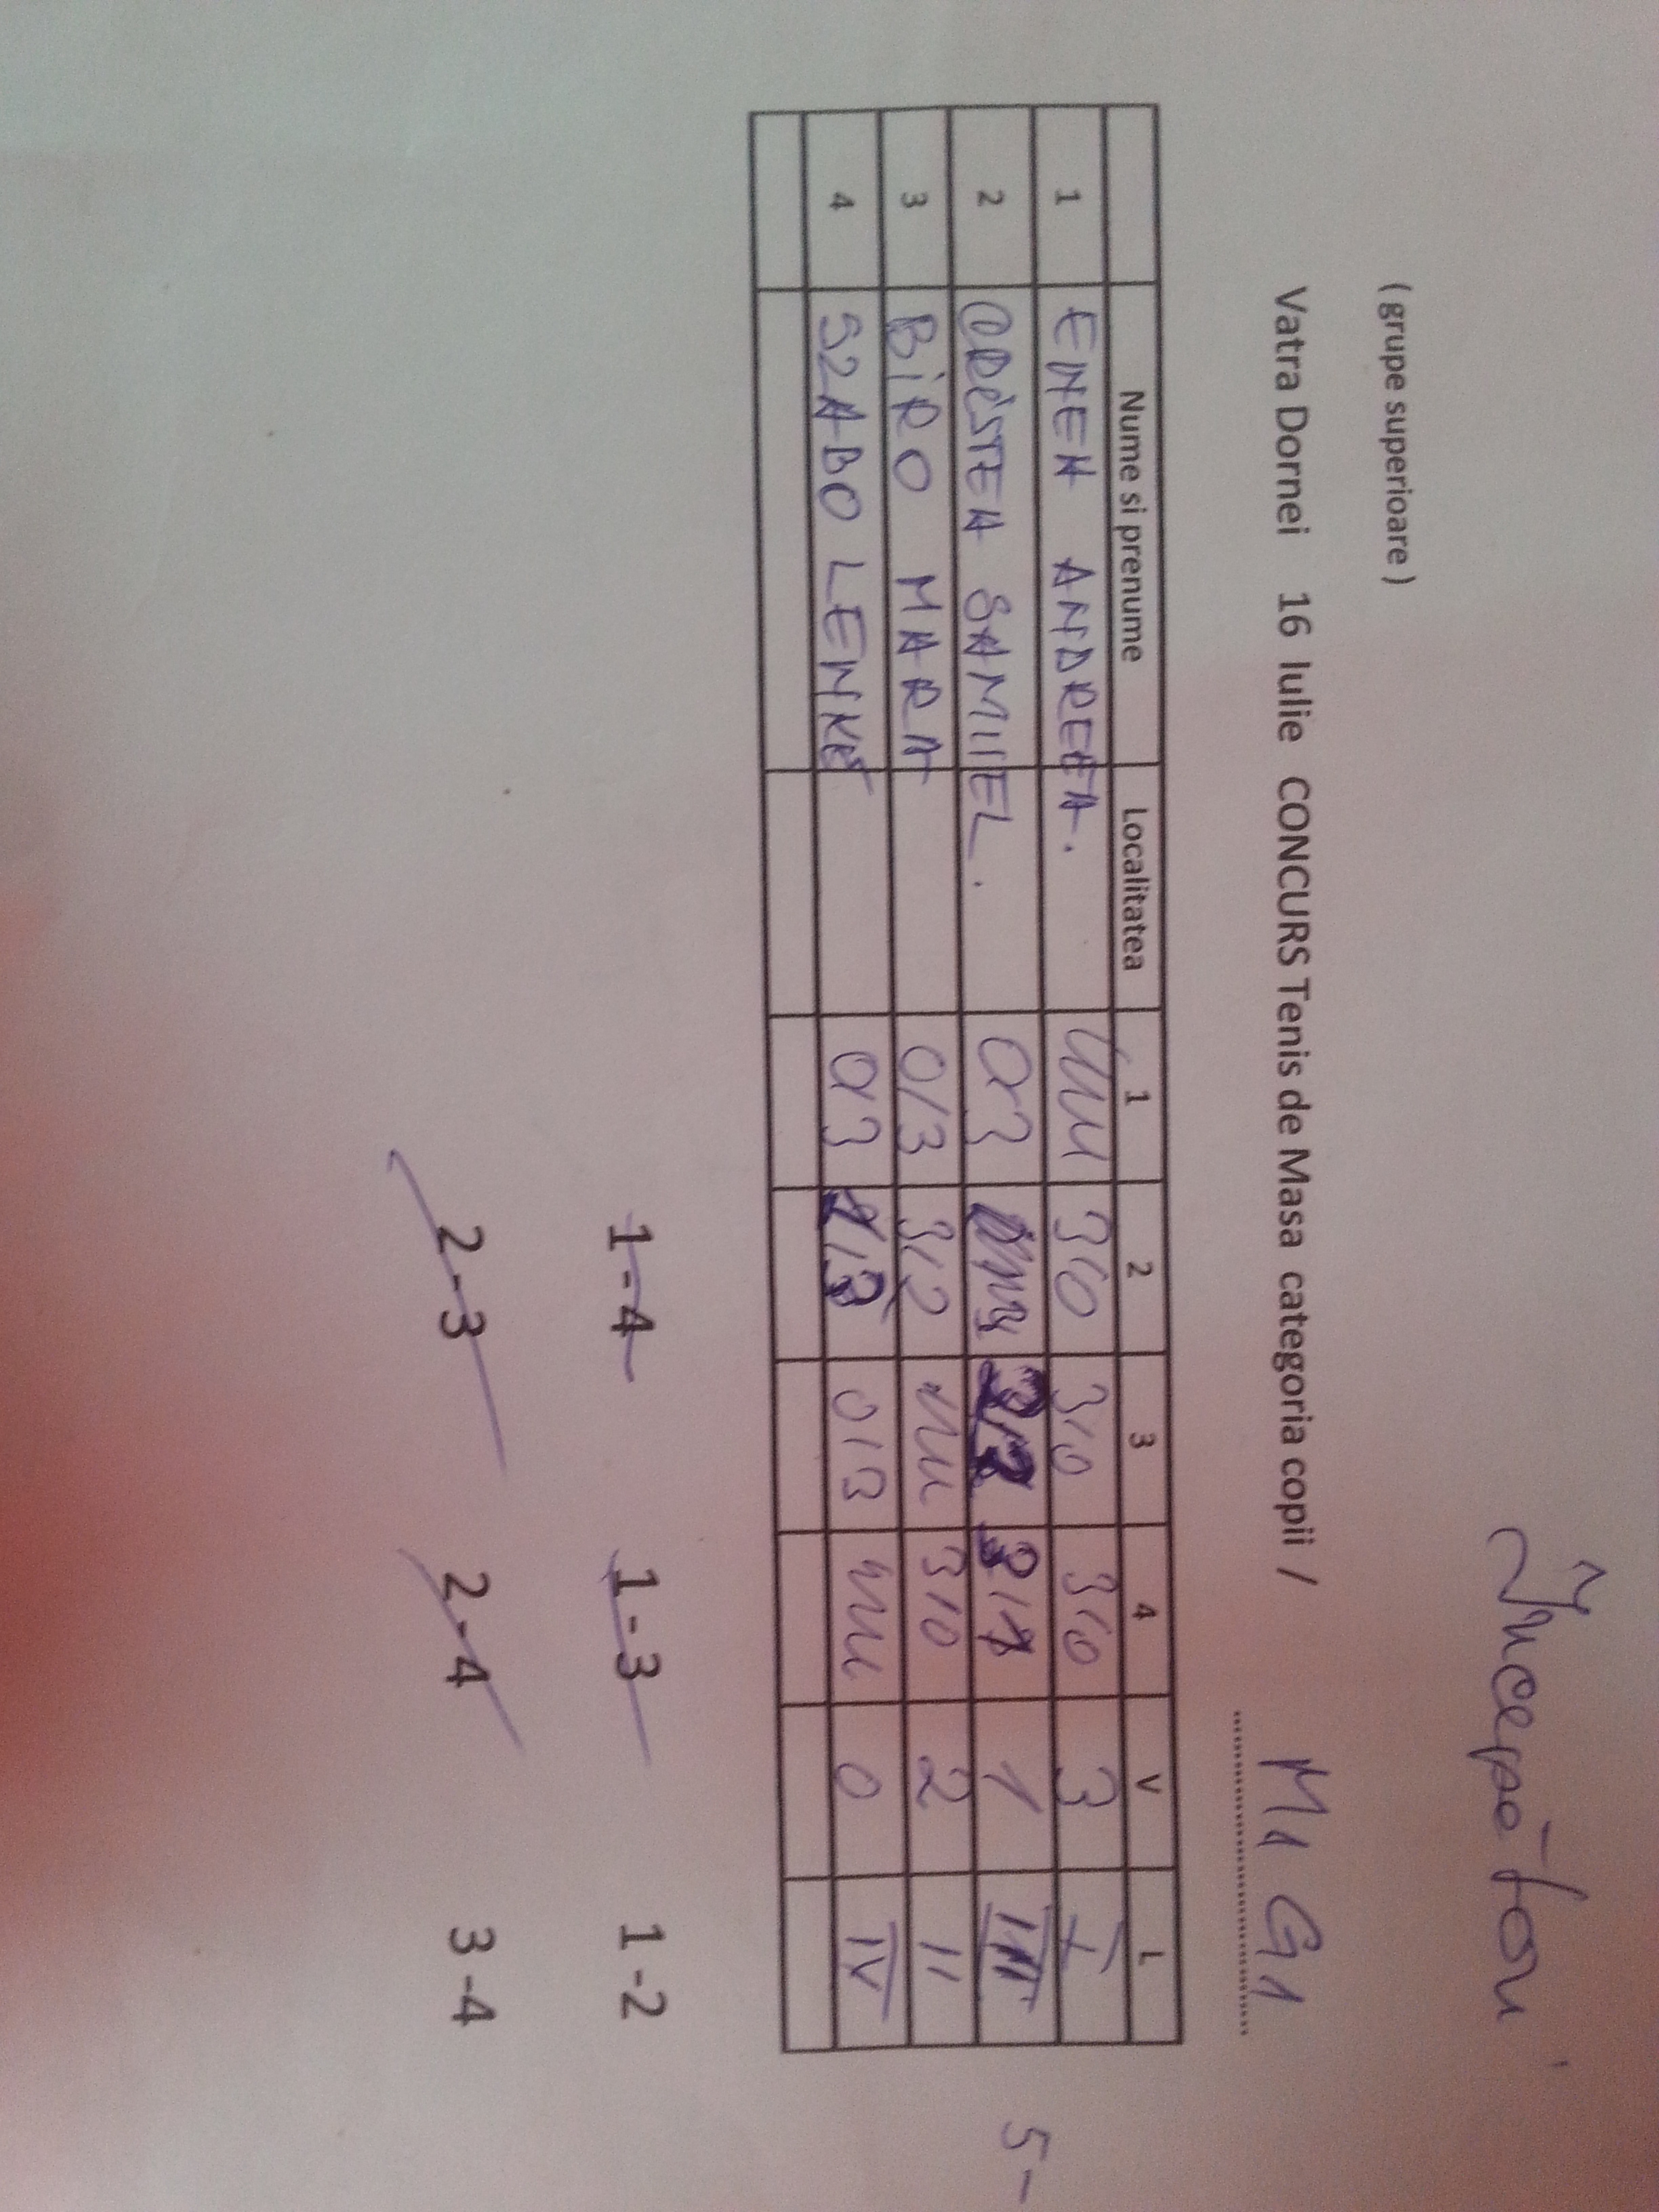 Începători
( grupe superioare )
Vatra Dornei 16 Iulie CONCURS Tenis de Masa categoria copii / M1 G1
Nume si prenume Localitatea 1 2 3 4 V L
1 ENEA ANDREEA. 3/0 3/0 3/0 3 I
2 SAMUEL. 0/3 2/3 3/1 1 III
3 BIRO MARA 0/3 3/2 3/0 2 II
4 SZABO LENKE 0/3 1/3 0/3 0 IV
5-
1-4 1-3 1-2
2-3 2-4 3-4